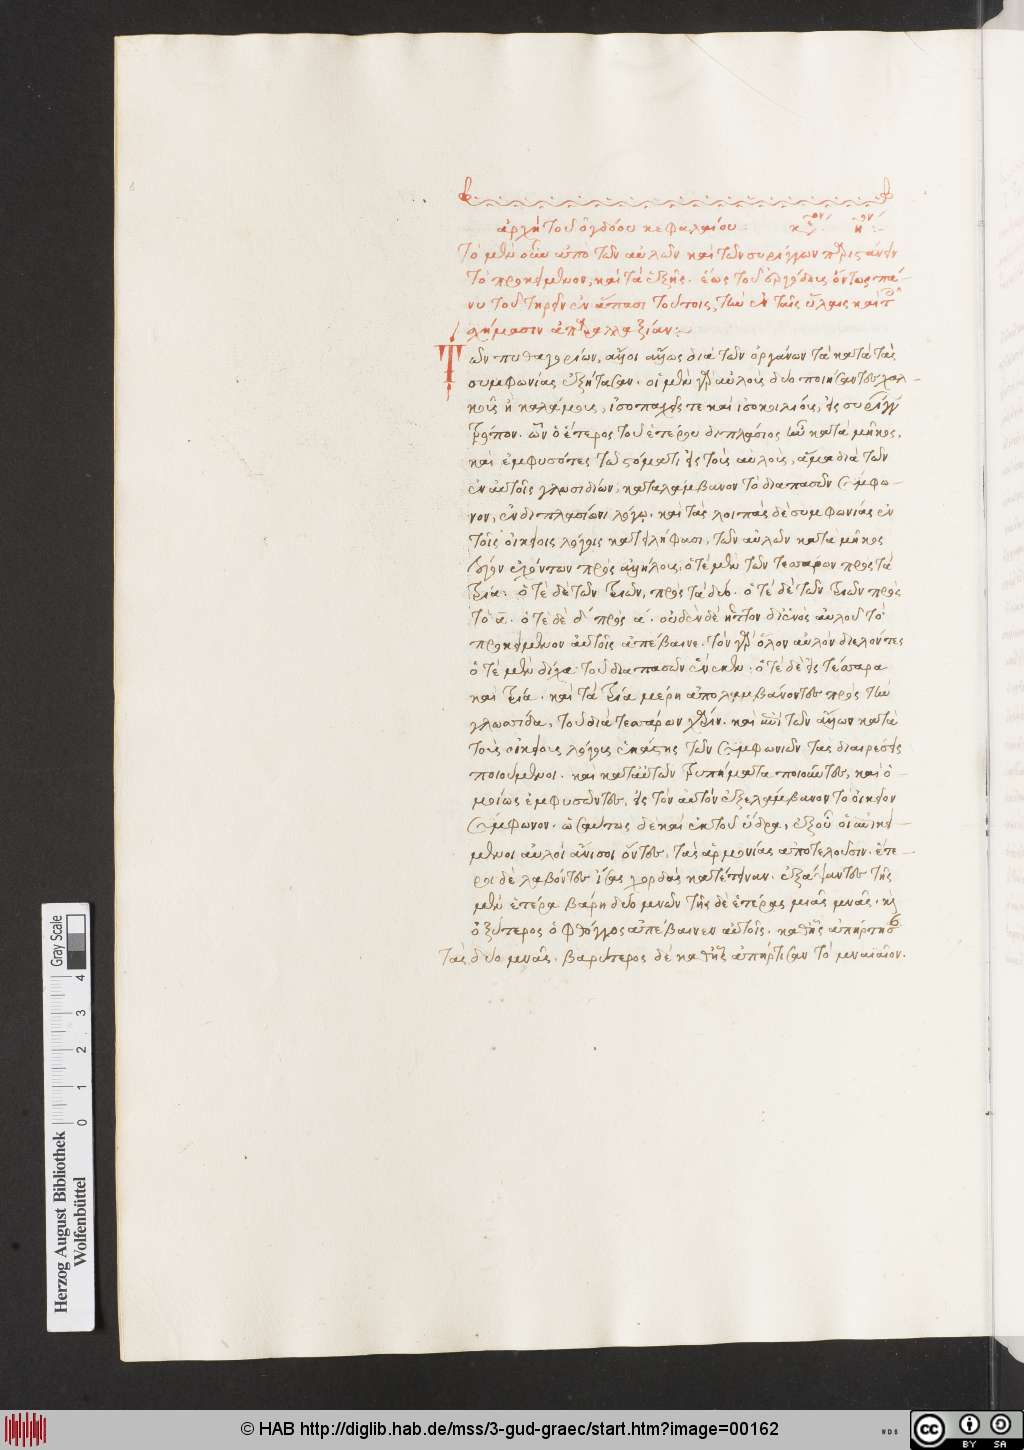 ἀρχὴ τοῦ ὀγδόου κεφαλαίου κείμενον η
Τὸ μὲν οὖν ἀπὸ τῶν αὐλῶν καὶ τῶν συρίγγων παριστάνειν
τὸ προκείμενον, καὶ τὰ ἑξῆς. ἕως τοῦ ἐργώδους ὄντως πά-
νυ τοῦ τηρεῖν ἐν ἅπασι τούτοις τὴν ἐν ταῖς ὕλαις καὶ τοῖς
σχήμασιν ἀπαραλλαξίαν:
Τῶν πυθαγορείων, ἄλλοι ἄλλως διὰ τῶν ὀργάνων τὰ κατὰ τὰς
συμφωνίας ἐξήτασαν. οἱ μὲν γὰρ αὐλοὺς δύο ποιήσαντες χαλ-
κοῦς ἢ καλάμους, ἰσοπαχεῖς τε καὶ ἰσοκοιλίους, εἰς συρίγγων
τρόπον. ὧν ὁ ἕτερος τοῦ ἑτέρου διπλάσιος ἦν κατὰ μῆκος,
καὶ ἐμφυσῶντες τῷ στόματι εἰς τοὺς αὐλοὺς, ἅμα διὰ τῶν
ἐν αὐτοῖς γλωσσιδίων, κατελάμβανον τὸ διαπασῶν σύμφω-
νον, ἐν διπλασίονι λόγῳ. καὶ τὰς λοιπὰς δὲ συμφωνίας ἐν
τοῖς οἰκείοις λόγοις κατειλήφασι, τῶν αὐλῶν κατὰ μῆκος
λόγον ἐχόντων πρὸς ἀλλήλους, ὁτὲ μὲν τῶν τεσσάρων πρὸς τὰ
τρία. ὁτὲ δὲ τῶν τριῶν, πρὸς τὰ δύο. ὁτὲ δὲ τῶν τριῶν πρὸς
τὸ α. ὁτὲ δὲ δ πρὸς α. οὐδὲν δὲ ἧττον δι' ἑνὸς αὐλοῦ τὸ
προκείμενον αὐτοῖς ἀπέβαινε. τὸν γὰρ ὅλον αὐλὸν διελόντες
ὁτὲ μὲν δίχα τοῦ διαπασῶν ἕνεκεν. ὁτὲ δὲ εἰς τέσσαρα
καὶ τρία. καὶ τὰ τρία μέρη ἀπολαμβάνοντες πρὸς τὴν
γλωσσίδα, τοῦ διὰ τεσσάρων χάριν. καὶ ἐπὶ τῶν ἄλλων κατὰ
τοὺς οἰκείους λόγους ἑκάστης τῶν συμφωνιῶν τὰς διαιρέσεις
ποιούμενοι. καὶ κατ' αὐτῶν τρυπήματα ποιοῦντες, καὶ ὁ-
μοίως ἐμφυσῶντες, εἰς τὸν αὐτὸν ἐξελάμβανον τὸ οἰκεῖον
σύμφωνον. ὡσαύτως δὲ καὶ ἐκ τοῦ ὕδρα, ἐξ οὗ οἱ αὐλού-
μενοι αὐλοὶ ἄνισοι ὄντες, τὰς ἁρμονίας ἀποτελοῦσιν. ἕτε-
ροι δὲ λαβόντες ἴσας χορδὰς κατέτειναν. ἐξάψαντες τῆς
μὲν ἑτέρας βάρη δύο μνῶν τῆς δὲ ἑτέρας μιᾶς μνᾶς. καὶ
ὀξύτερος ὁ φθόγγος ἀπέβαινεν αὐτοῖς. καθ' ἧς ἀπήρτησ
τὰς δύο μνᾶς. βαρύτερος δὲ καθ' ἧς ἀπήρτισαν τὸ μναϊαῖον.
Gray Scale
0 1 2 3 4
Herzog August Bibliothek
Wolfenbüttel
© HAB http://diglib.hab.de/mss/3-gud-graec/start.htm?image=00162
WDB
cc
BY SA